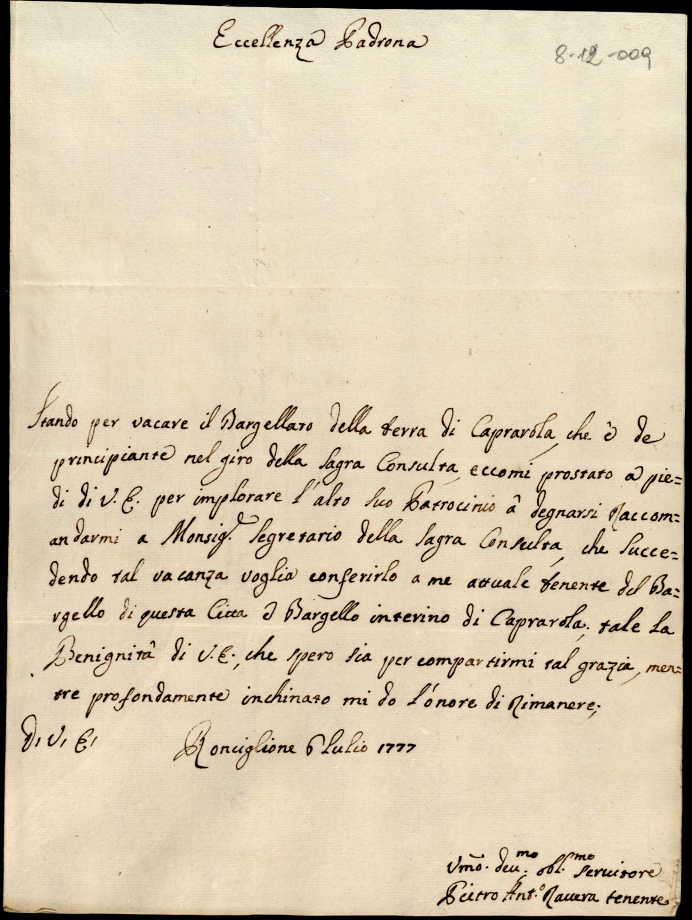 Eccellenza Padrona
8-12-009
Stando per vacare il Bargellato della terra di Caprarola, che è de
principiante nel giro della Sagra Consulta, eccomi prostato a pie=
di di V. E. per implorare l'alto suo Patrocinio à degnarsi Raccom=
andarmi a Monsig.r Segretario della Sagra Consulta, che succe=
dendo tal vacanza voglia conferirlo a me attuale tenente del Ba=
rgello di questa Città è Bargello interino di Caprarola; tale la
Benignità di V. E., che spero sia per compartirmi tal grazia, men=
tre profondamente inchinato mi do l'onore di Rimanere;
Di V. E.
Ronciglione 6 Lulio 1777
Vmo. deu.mo obl.mo seruitore
Pietro Ant.o Rauera tenente